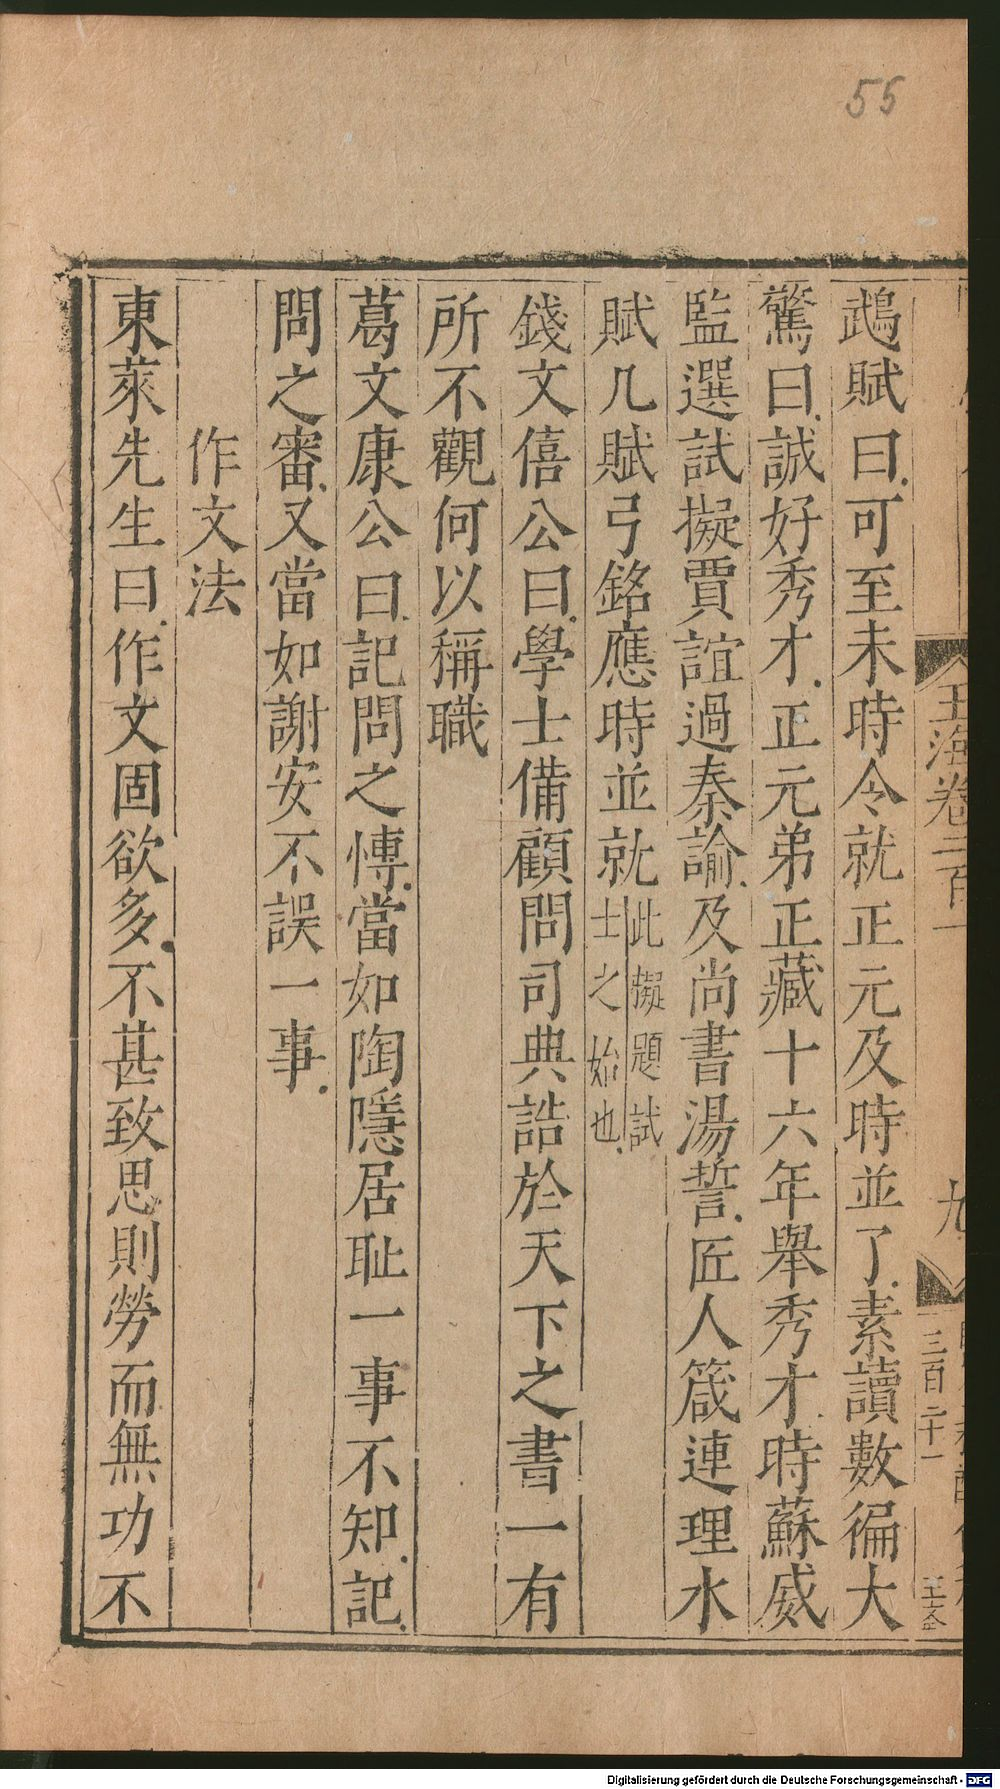 55
玉海卷二百一
九
三百二十一
鵡賦曰可至未時令就正元及時並了素讀數徧大
驚曰誠好秀才正元弟正藏十六年舉秀才時蘇威
監選試擬賈誼過秦論及尚書湯誓匠人箴連理水
賦几賦弓銘應時並就此擬題試士之始也
錢文僖公曰學士備顧問司典誥於天下之書一有
所不觀何以稱職
葛文康公曰記問之博當如陶隱居耻一事不知記
問之審又當如謝安不誤一事
作文法
東萊先生曰作文固欲多不甚致思則勞而無功不
Digitalisierung gefördert durch die Deutsche Forschungsgemeinschaft - DFG